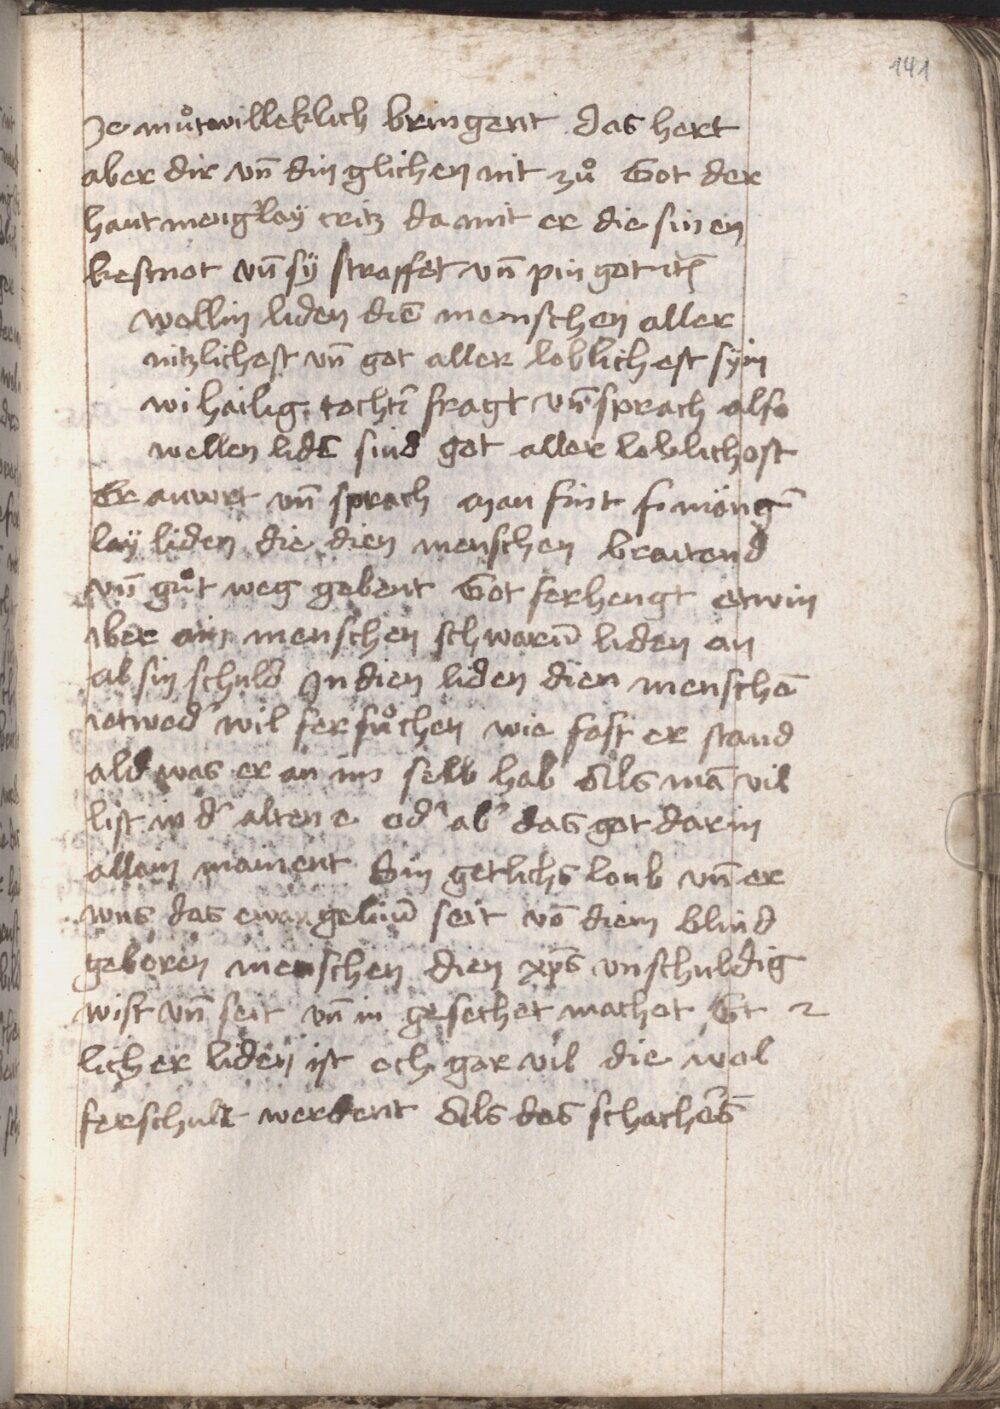 141
Je muͦtwilleklich bringent das hert
aber dir vn̄ din glichen nit zuͦ Got der
haut mengʼlay critz da mit er die sinen
kestnot vn̄ sÿ straffet vn̄ pin got
wellin liden die menschen aller
nitzlichest vn̄ got aller loblichest sÿin
hailig tochtʼ fragt vn̄ sprach also
wellen lidē sind got aller loblichost
Er anwrt vn̄ sprach man fint fi mëngʼ
laÿ liden die dien menschen braitend
vn̄ guͦt weg gebent Got ferhengt etwin
aber ain menschen schwarū liden an
ab sin schuld In dien liden dien menschē
ietwedʼ wil fersuͦchen wie fast er stand
ald was er an im selb hab Als mā vil
list in dʼ alten e odʼ abʼ das got darin
allain mainent Sin getlichs loub vn̄ er
wns das ewangeliū seit vō diem blind
geboren menschen dien xp̄s vnschuldig
wist vn̄ seit vn̄ in gesechet machet Et
licher liden ist och gar vil die wol
ferschult werdent Als das schachʼs